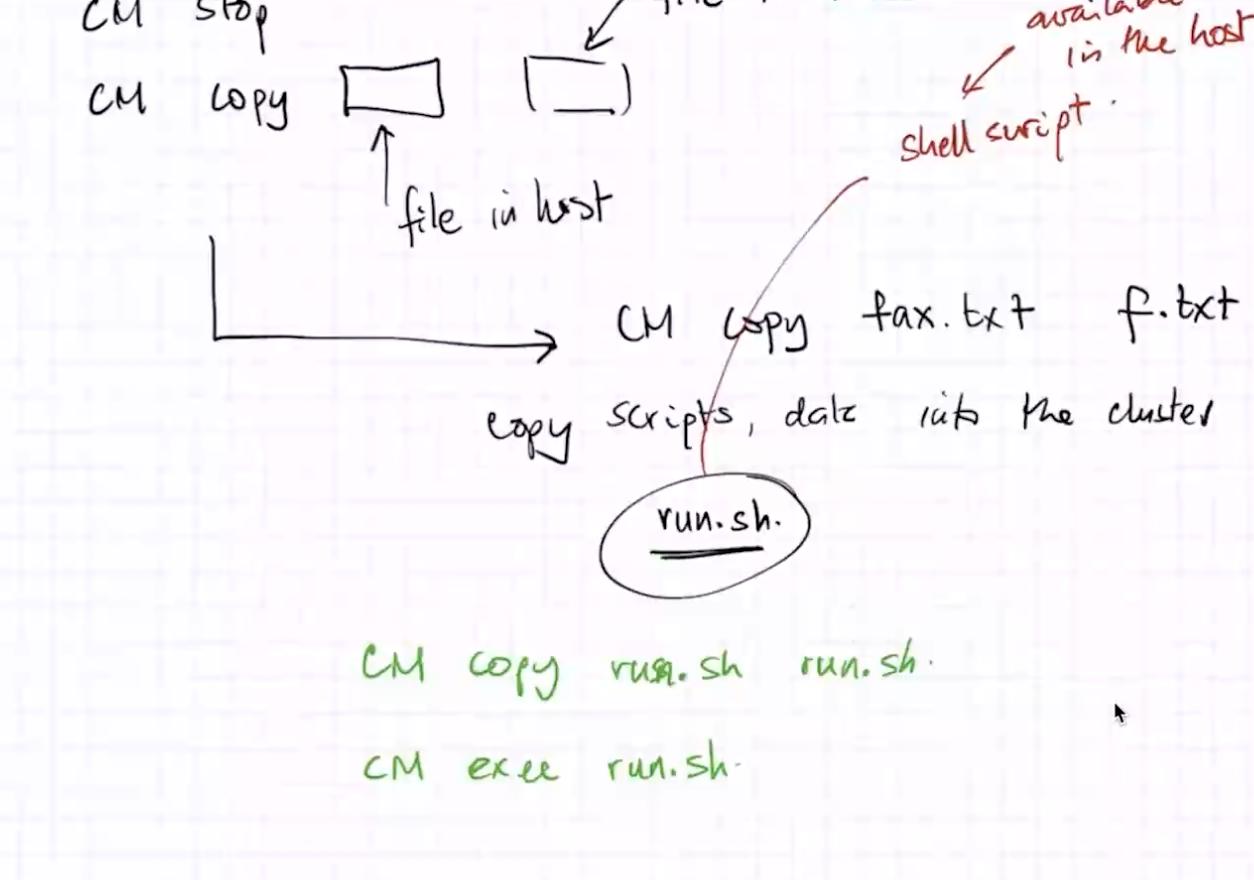 CM stop
file
available
in the host
CM copy
shell script.
file in host
CM copy fax.txt f.txt
copy scripts, data into the cluster
run.sh.
CM copy run.sh run.sh.
CM exec run.sh.